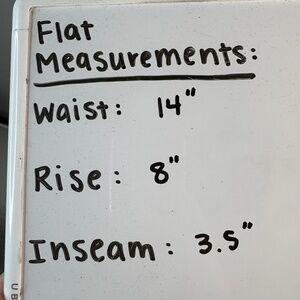 Flat
Measurements:
Waist: 14"
Rise: 8"
Inseam: 3.5"